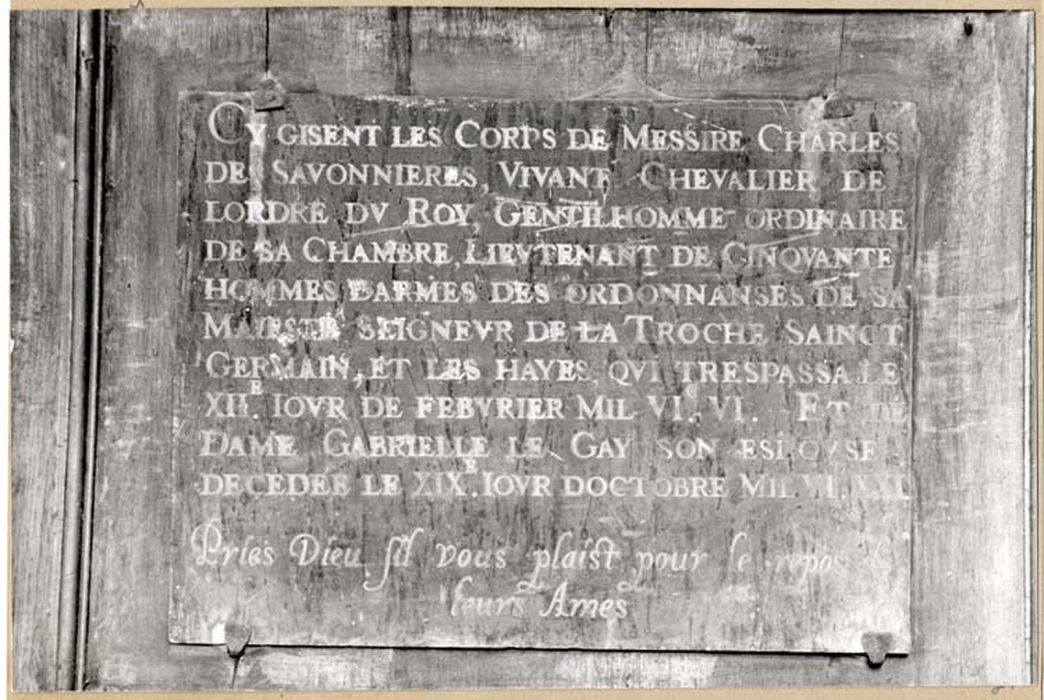 CY GISENT LES CORPS DE MESSIRE CHARLES
DE SAVONNIERES, VIVANT CHEVALIER DE
LORDRE DV ROY, GENTILHOMME ORDINAIRE
DE SA CHAMBRE, LIEVTENANT DE CINQVANTE
HOMMES DARMES DES ORDONNANSES DE SA
MAIESTE SEIGNEVR DE LA TROCHE SAINCT
GERMAIN, ET LES HAYES, QVI TRESPASSA LE
XII.E IOVR DE FEBVRIER MIL VI.C VI. ET DE
DAME GABRIELLE LE GAY SON ESPOVSE
DECEDEE LE XIX.E IOVR DOCTOBRE MIL VI.
Pries Dieu sil vous plaist pour le repos
leurs Ames